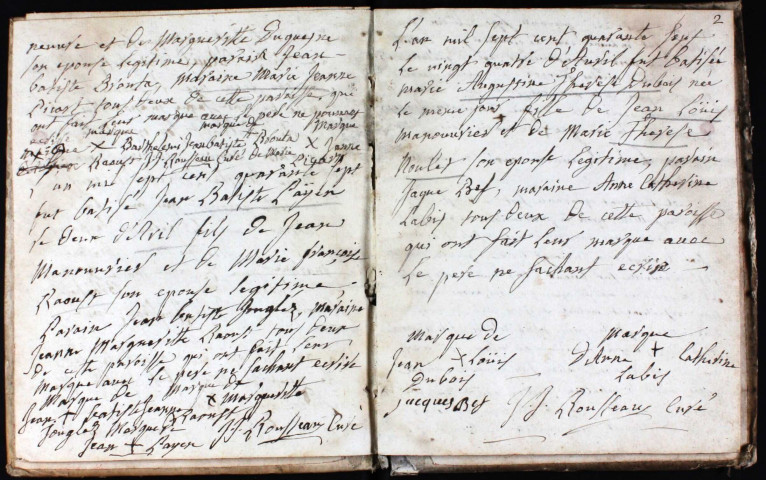 neuuse et de Margueritte Duquesne
son epouse legitime, parain Jean-
batiste Bronta, maraine Marie Jeanne
Picart tous deux de cette paroisse, qui
ont fait leur marque avec le pere ne pouvant
marque marque de marque
X Barthelemi Jean batiste + Bronta X Jeanne
Raoust J. J. Rousseau Curé de Marie Picart
L'an mil sept cent quarante sept
fut batisé Jean Batiste Payen
le deux d'Avril fils de Jean
Manouvrier et de Marie françoise
Raoust son epouse legitime,
Parain Jean batiste Jonglez, maraine
Jeanne Marguerite Raoust tous deux
de cette paroisse qui ont fait leur
marque avec le pere ne sachant ecrire
Marque de Marque de
Jean + batiste Jeanne X Marguerite
Jonglez Marque Raoust
Jean + Payen J. J. Rousseau Curé
2
L'an mil sept cent quarante sept
le vingt quatre d'Avril fut batisée
marie Augustine Therese Dubois née
le meme jour fille de Jean Loüis
manouvrier et de Marie therese
son epouse legitime, parain
Jaque Bef, maraine Anne Catherine
Labis tous deux de cette paroisse
qui ont fait leur marque avec
le pere ne sachant ecrire
Marque de Marque
Jean X Loüis D'Anne + Catherine
Dubois Labis
jacques Bef J. J. Rousseau Curé